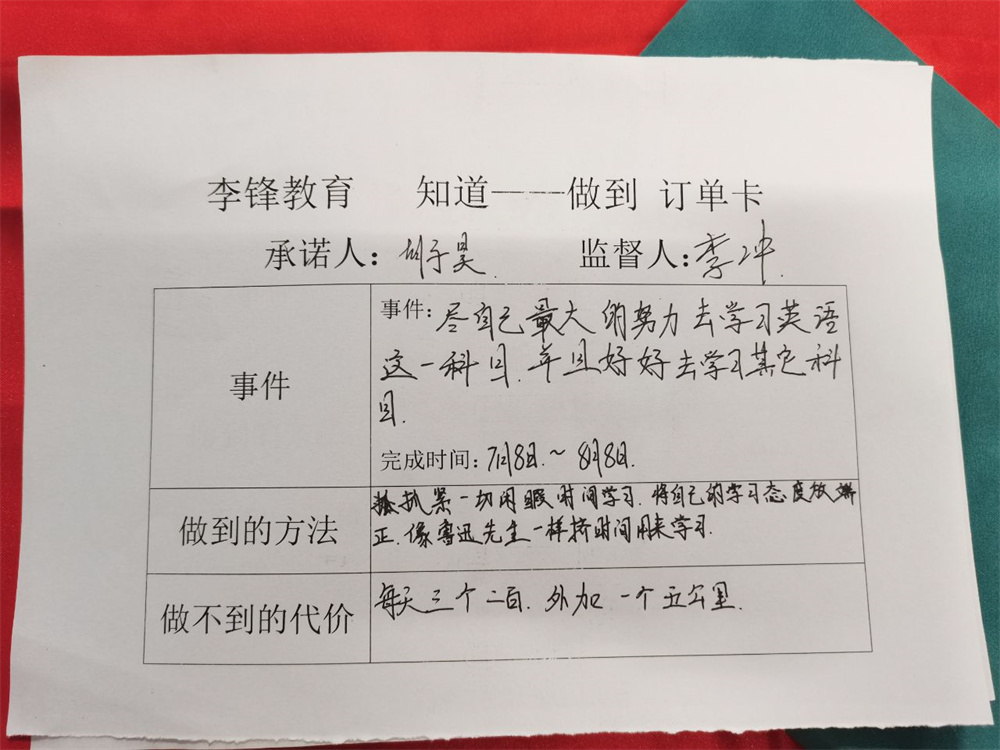 李锋教育 知道————做到 订单卡
承诺人：胡子昊. 监督人：李冲.
事件
事件：尽自己最大的努力去学习英语
这一科目.并且好好去学习其它科
目.
完成时间：7月8日.~8月8日.
做到的方法
抓紧一切闲暇时间学习.将自己的学习态度放端
正.像鲁迅先生一样挤时间用来学习.
做不到的代价
每天三个二百.外加一个五公里.